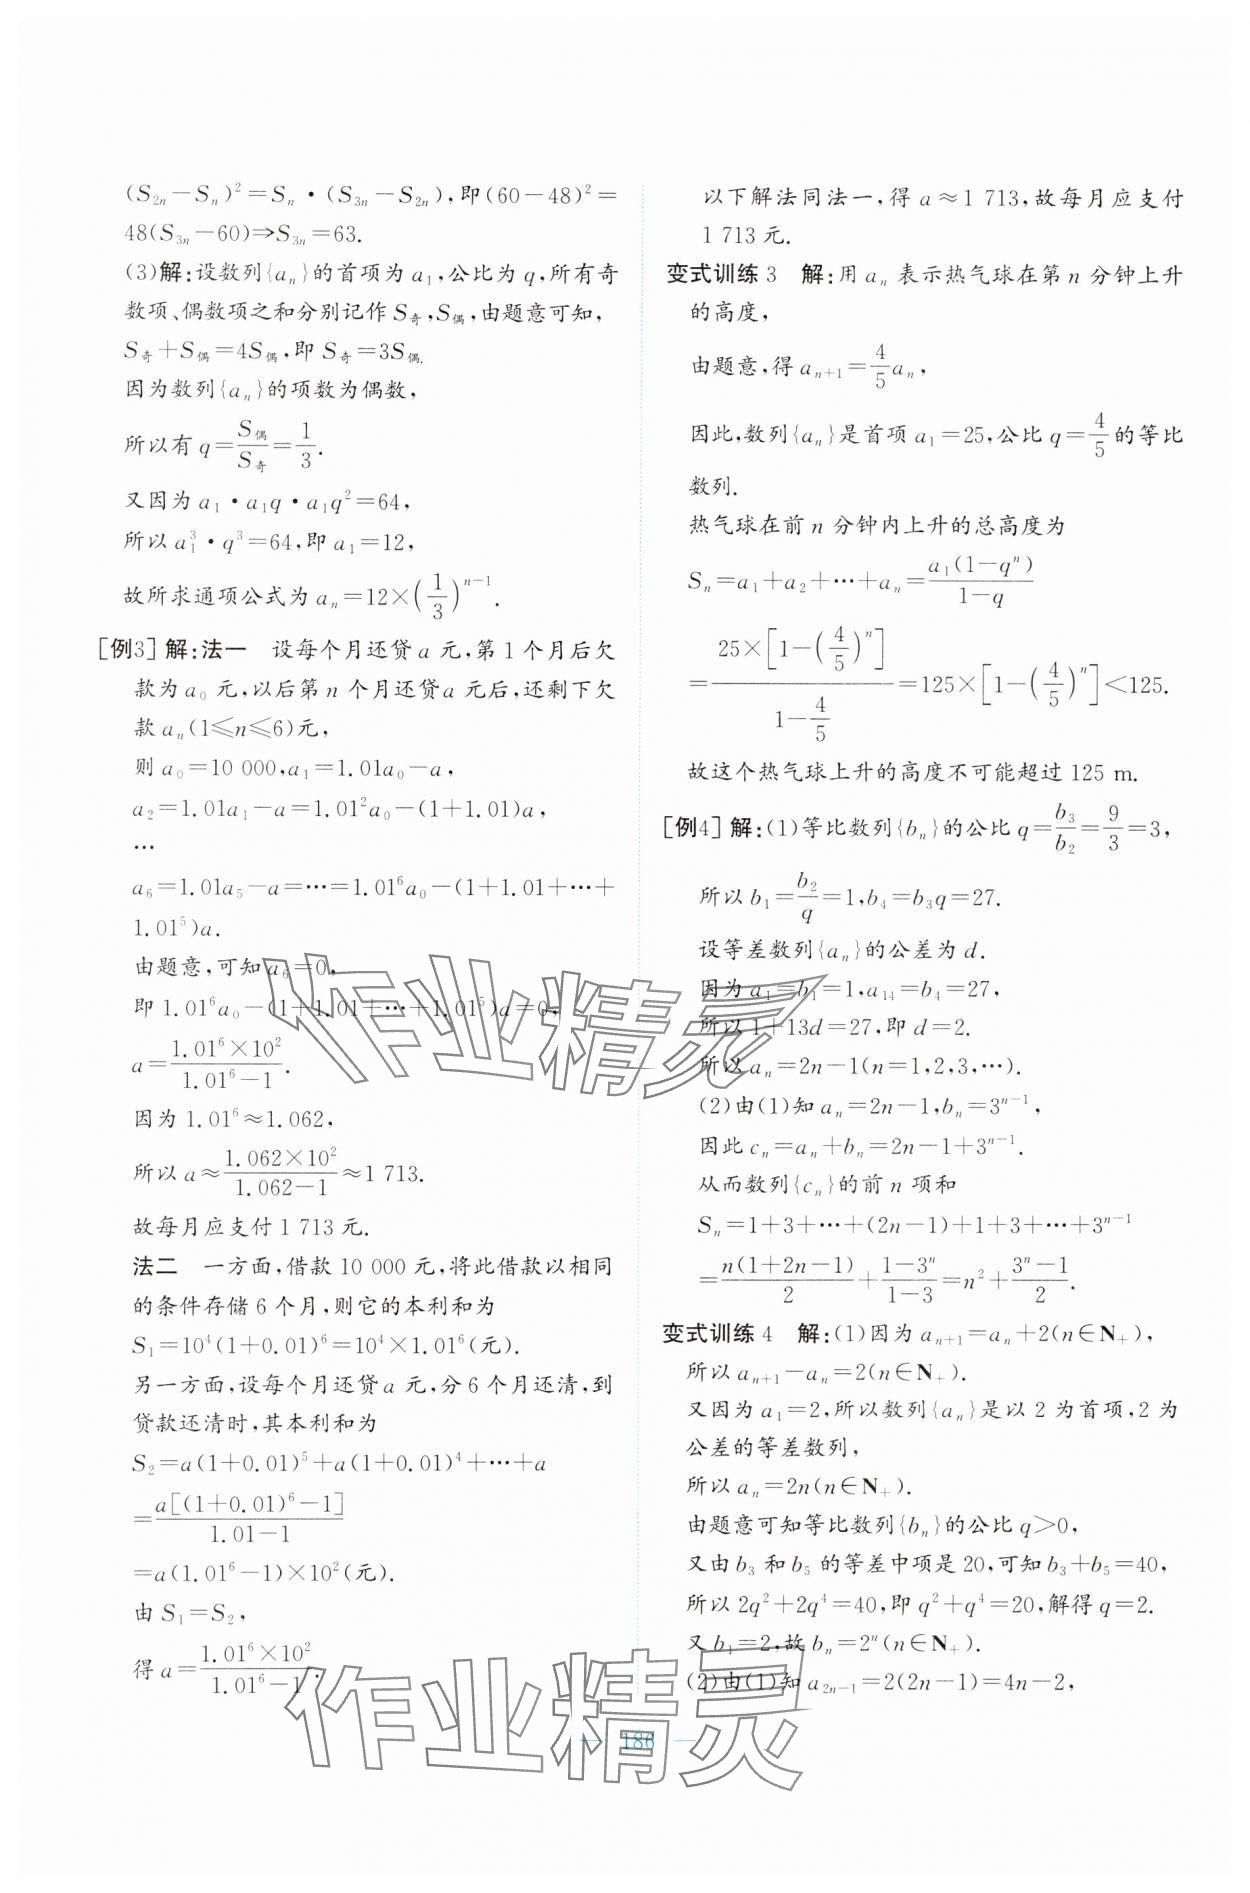 (S₂ₙ－Sₙ)²＝Sₙ·(S₃ₙ－S₂ₙ),即(60－48)²＝
48(S₃ₙ－60)⇒S₃ₙ＝63.
(3)解:设数列{aₙ}的首项为a₁,公比为q,所有奇
数项、偶数项之和分别记作S奇,S偶,由题意可知,
S奇＋S偶＝4S偶,即S奇＝3S偶.
因为数列{aₙ}的项数为偶数,
所以有q＝S偶/S奇＝1/3.
又因为a₁·a₁q·a₁q²＝64,
所以a₁³·q³＝64,即a₁＝12,
故所求通项公式为aₙ＝12×(1/3)ⁿ⁻¹.
[例3] 解:法一 设每个月还贷a元,第1个月后欠
款为a₀元,以后第n个月还贷a元后,还剩下欠
款aₙ(1≤n≤6)元,
则a₀＝10 000,a₁＝1.01a₀－a,
a₂＝1.01a₁－a＝1.01²a₀－(1＋1.01)a,
…
a₆＝1.01a₅－a＝…＝1.01⁶a₀－(1＋1.01＋…＋
1.01⁵)a.
由题意,可知a₆＝0,
即1.01⁶a₀－(1＋1.01＋…＋1.01⁵)a＝0,
a＝(1.01⁶×10²)/(1.01⁶－1).
因为1.01⁶≈1.062,
所以a≈(1.062×10²)/(1.062－1)≈1 713.
故每月应支付1 713元.
法二 一方面,借款10 000元,将此借款以相同
的条件存储6个月,则它的本利和为
S₁＝10⁴(1＋0.01)⁶＝10⁴×1.01⁶(元).
另一方面,设每个月还贷a元,分6个月还清,到
贷款还清时,其本利和为
S₂＝a(1＋0.01)⁵＋a(1＋0.01)⁴＋…＋a
＝a[(1＋0.01)⁶－1]/(1.01－1)
＝a(1.01⁶－1)×10²(元).
由S₁＝S₂,
得a＝(1.01⁶×10²)/(1.01⁶－1).
以下解法同法一,得a≈1 713,故每月应支付
1 713元.
变式训练3 解:用aₙ表示热气球在第n分钟上升
的高度,
由题意,得aₙ₊₁＝4/5aₙ,
因此,数列{aₙ}是首项a₁＝25,公比q＝4/5的等比
数列.
热气球在前n分钟内上升的总高度为
Sₙ＝a₁＋a₂＋…＋aₙ＝a₁(1－qⁿ)/(1－q)
＝25×[1－(4/5)ⁿ]/(1－4/5)＝125×[1－(4/5)ⁿ]＜125.
故这个热气球上升的高度不可能超过125 m.
[例4] 解:(1)等比数列{bₙ}的公比q＝b₃/b₂＝9/3＝3,
所以b₁＝b₂/q＝1,b₄＝b₃q＝27.
设等差数列{aₙ}的公差为d.
因为a₁＝b₁＝1,a₁₄＝b₄＝27,
所以1＋13d＝27,即d＝2.
所以aₙ＝2n－1(n＝1,2,3,…).
(2)由(1)知aₙ＝2n－1,bₙ＝3ⁿ⁻¹,
因此cₙ＝aₙ＋bₙ＝2n－1＋3ⁿ⁻¹.
从而数列{cₙ}的前n项和
Sₙ＝1＋3＋…＋(2n－1)＋1＋3＋…＋3ⁿ⁻¹
＝n(1＋2n－1)/2＋(1－3ⁿ)/(1－3)＝n²＋(3ⁿ－1)/2.
变式训练4 解:(1)因为aₙ₊₁＝aₙ＋2(n∈N₊),
所以aₙ₊₁－aₙ＝2(n∈N₊).
又因为a₁＝2,所以数列{aₙ}是以2为首项,2为
公差的等差数列,
所以aₙ＝2n(n∈N₊).
由题意可知等比数列{bₙ}的公比q＞0,
又由b₃和b₅的等差中项是20,可知b₃＋b₅＝40,
所以2q²＋2q⁴＝40,即q²＋q⁴＝20,解得q＝2.
又b₁＝2,故bₙ＝2ⁿ(n∈N₊).
(2)由(1)知a₂ₙ₋₁＝2(2n－1)＝4n－2,
作业精灵
作业精灵
186